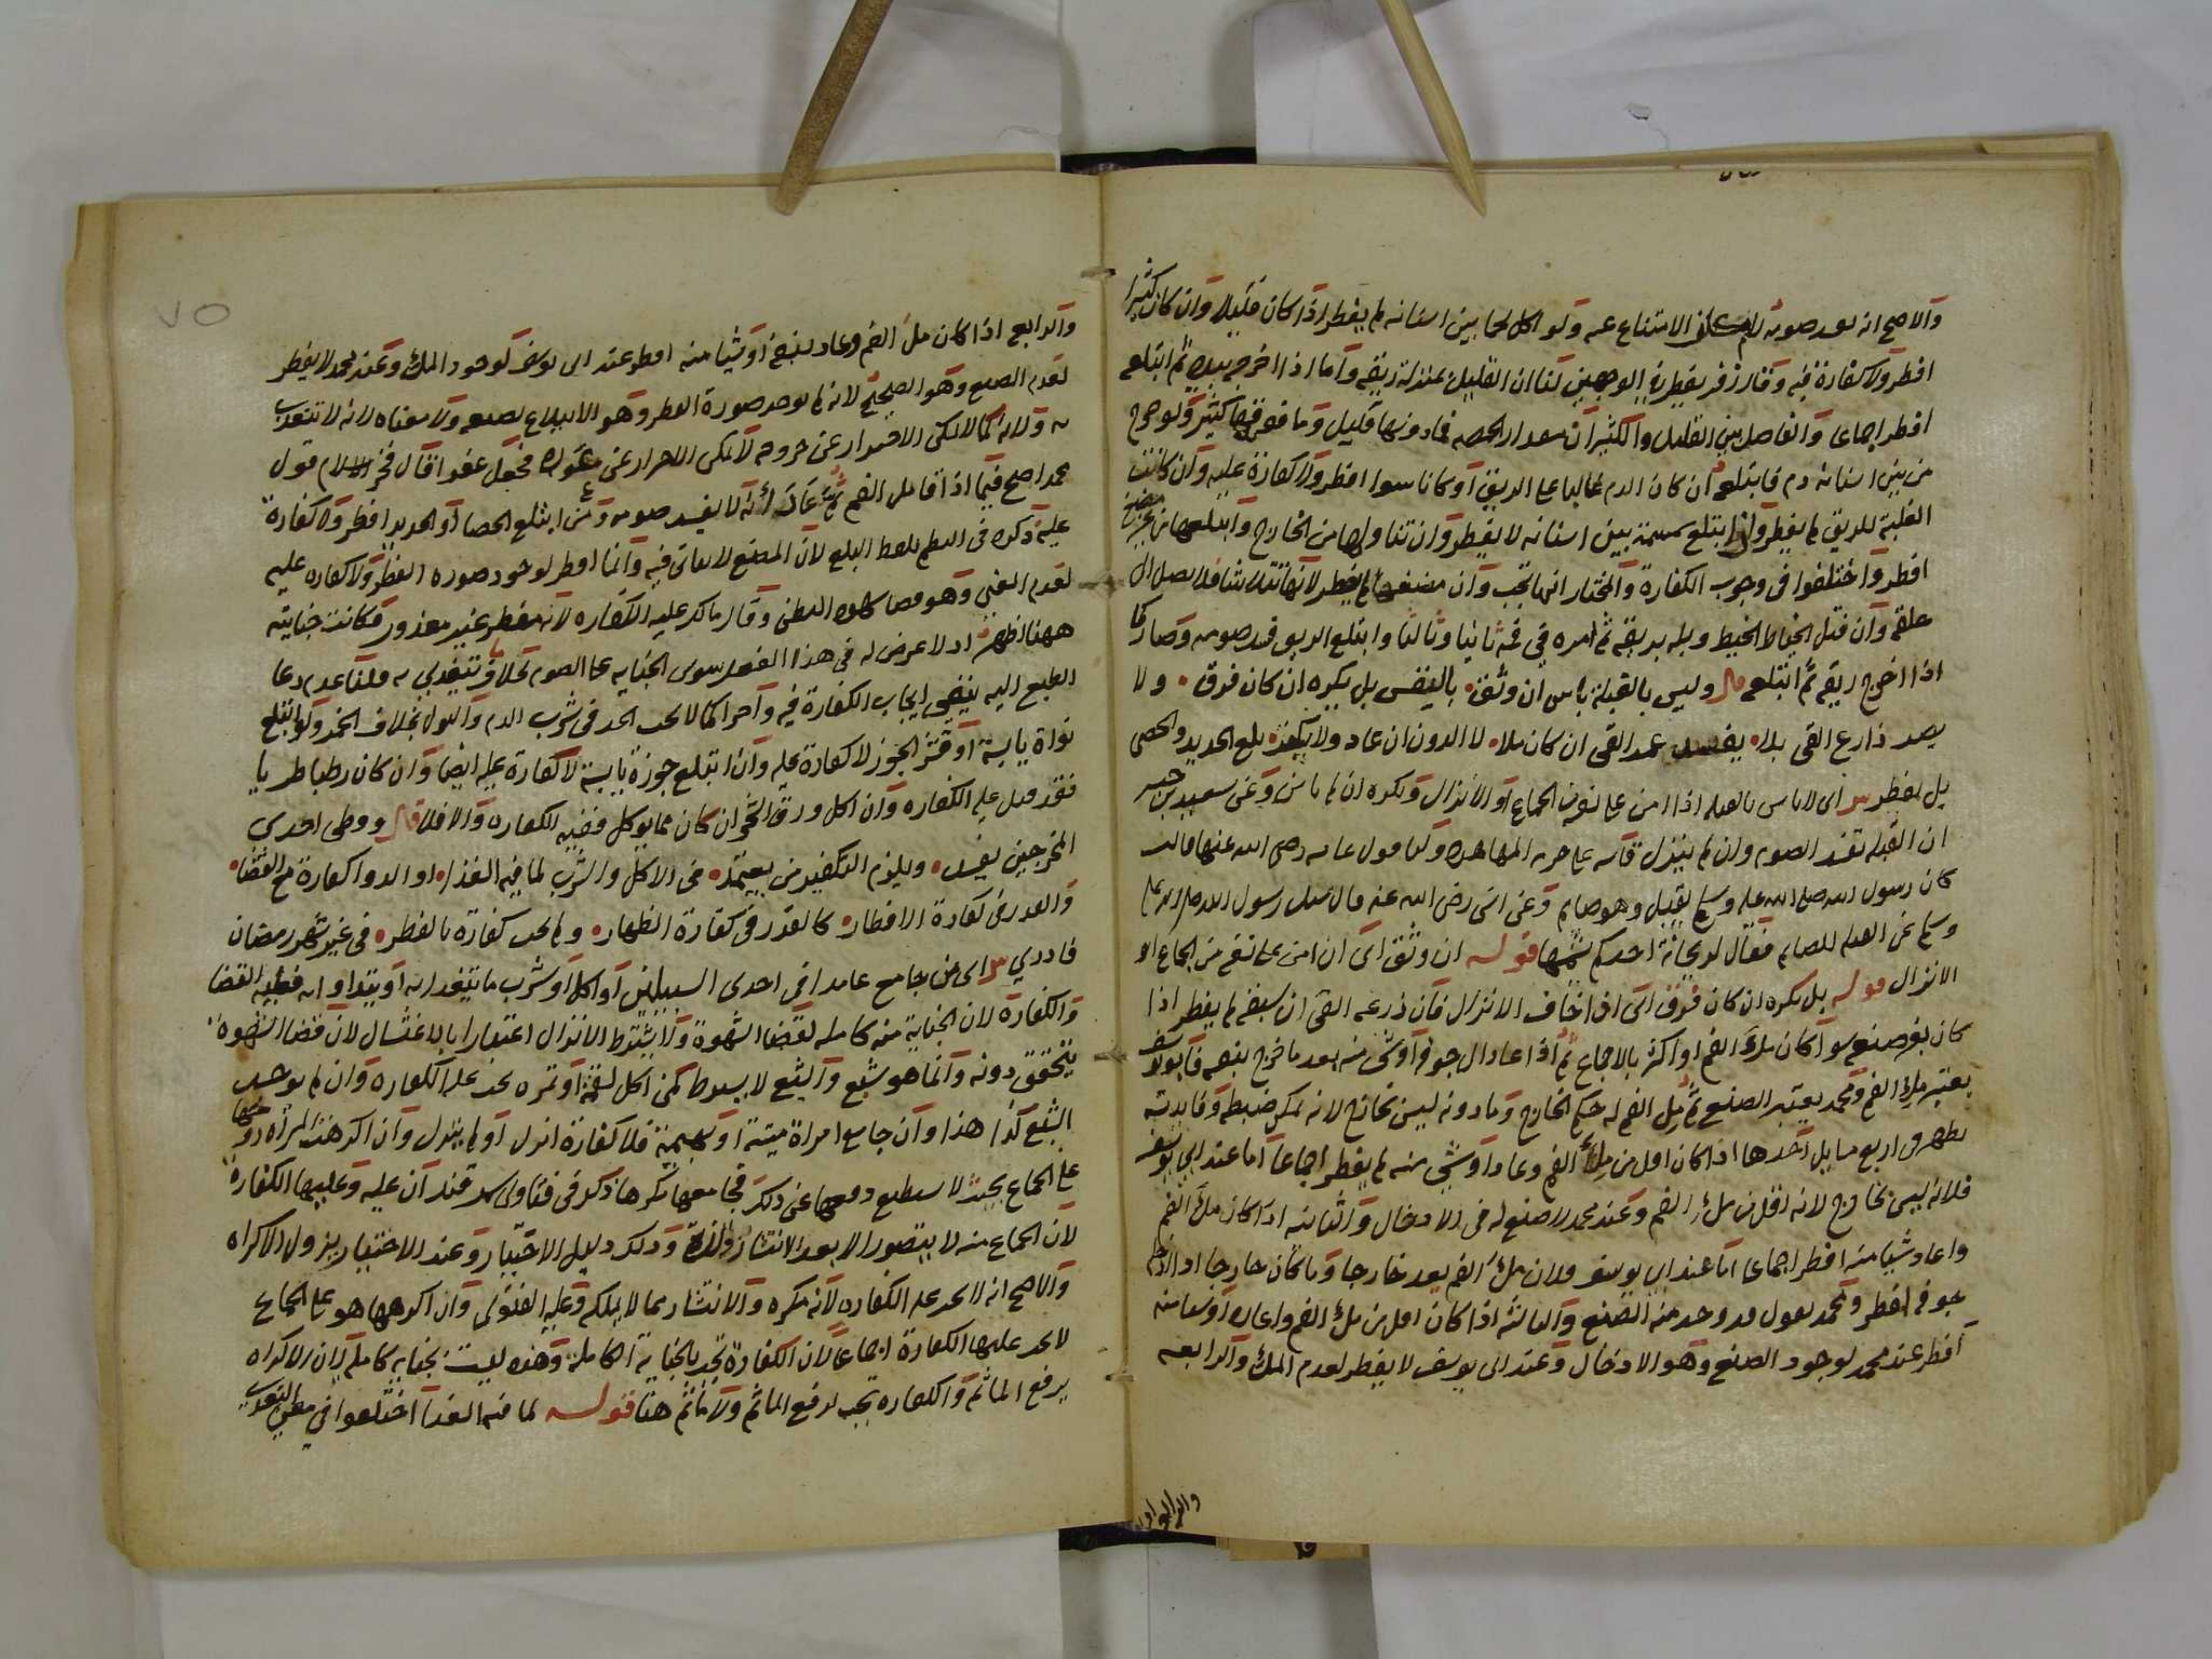 والاصح انه يفسد صومه لامكان الامتناع عنه ولو اكل لحما بين اسنانه لم يفطر اذا كان قليلا وان كان كثيرا
افطر ولا كفارة فيه وقال زفر يفطر في الوجهين لنا ان القليل بمنزلة ريقه واما اذا اخرج بيده ثم ابتلع
افطر اجماعا والفاصل بين القليل والكثير ان مقدار الحمصه فما دونها قليل وما فوقها كثير ولو خرج
من بين اسنانه دم فابتلعه ان كان الدم غالبا على الريق او كانا سوا افطر ولا كفارة عليه وان كانت
الغلبة للريق لم يفطر واذا ابتلع سمسمة بين اسنانه لا يفطر وان تناولها من الخارج وابتلعها من غير مضغ
افطر واختلفوا في وجوب الكفارة والمختار انها تجب وان مضغها لم يفطر لانها تتلاشا فلا يصل الى
حلقه وان فتل الخياط الخيط وبله بريقه ثم امره في فمه ثانيا وثالثا وابتلع الريق فسد صومه وصار كما
اذا اخرج ريقه ثم ابتلعه قال وليس بالقبلة باس ان وثق بالنفس بل يكره ان كان فرق ولا
يضر ذارع القي بلا يفسد عمد القي ان كان ملا لا الدون ان عاد ولا يكفر بلع الحديد والحصى
بل يفطر اى لاباس بالقبله اذا امن على نفسه الجماع او الانزال ويكره ان لم يامن وعن سعيد بن جبير
ان القبله تفسد الصوم وان لم ينزل قاسه على حرمه المصاهره ولنا قول عايشه رضى الله عنها قالت
كان رسول الله صلى الله عليه وسلم يقبل وهو صايم وعن انس رضى الله عنه قال سئل رسول الله صلى الله عليه
وسلم عن القبله للصايم فقال لريحانة احدكم يشمها قوله ان وثق اى ان امن على نفسه من الجماع او
الانزال قوله بل يكره ان كان فرق اى اذا خاف الانزال فان ذرعه القى ان سبقه لم يفطر اذا
كان بغير صنعه سوا كان ملا الفم او اكثر بالاجماع ثم اذا عاد الى جوفه او شى منه بعد ما خرج بنفسه فابو يوسف
يعتبر ملا الفم ومحمد يعتبر الصنع ثم ملء الفم له حكم الخارج وما دونه ليس بخارج لانه يمكن ضبطه وفايدته
تظهر في اربع مسايل احدها اذا كان اقل من ملا الفم وعاد او شى منه لم يفطر اجماعا اما عند ابي يوسف
فلانه ليس بخارج لانه اقل من ملء الفم وعند محمد لا صنع له في الادخال والثانيه اذا كان ملا الفم
واعاده او شيا منه افطر اجماعا اما عند ابي يوسف فلان ملء الفم يعد خارجا وما كان خارجا اذا ادخل
جوفه افطر ومحمد يقول قد وجد منه الصنع والثالثه اذا كان اقل من ملء الفم واعاده او شيا منه
افطر عند محمد لوجود الصنع وهو الادخال وعند ابي يوسف لا يفطر لعدم الملء والرابعه
والرابع اذا
٧٥
والرابع اذا كان ملء الفم وعاد بنفسه او شيا منه افطر عند ابى يوسف لوجود الملء وعند محمد لا يفطر
لعدم الصنع وهو الصحيح لانه لم يوجد صورة الفطر وهو الابتلاع بصنعه ولا معناه لانه لا يتغذى
به ولانه كما لا يمكن الاحتراز عن خروجه لا يمكن الاحتراز عن عوده فجعل عفوا قال فخر الاسلام قول
محمد اصح فيما اذا قا ملء الفم ثم عاد انه لا يفسد صومه ومن ابتلع الحصا او الحديد افطر ولا كفارة
عليه ذكره في النظم بلفظ البلع لان المضغ لا يتاتى فيه وانما افطر لوجود صوره الفطر ولا كفاره عليه
لعدم المعنى وهو قضا شهوة البطن وقال مالك عليه الكفاره لانه مفطر غير معذور فكانت جنايته
ههنا اظهر اذ لا غرض له في هذا الفعل سوى الجنايه على الصوم بخلاف ما يتغذى به قلنا عدم دعا
الطبع اليه يغني ايجاب الكفارة فيه زاجرا كما لا يجب الحد في شرب الدم والبول بخلاف الخمر ولو ابتلع
نواة يابسة او قشر الجوز لا كفارة عليه وان ابتلع جوزة يابسة لا كفارة عليه ايضا وان كان رطبا طريا
فقد قيل عليه الكفاره وان اكل ورق الشجر ان كان مما يوكل ففيه الكفاره والا فلا قال ووطى احدى
المخرجين يفسد ويلزم التكفير من يعتمد في الاكل والشرب لما فيه الغذا او الدوا كفارة مع القضا
والقدر في كفارة الافطار كالقدر في كفارة الظهار ولم تجب كفارة بالفطر في غير شهر رمضان
فادري اى من جامع عامدا في احدى السبيلين او اكل او شرب ما يتغذا به او يتداوا به فعليه القضا
والكفارة لان الجناية منه كامله لقضا الشهوة ولا يشترط الانزال اعتبارا بالاغتسال لان قضا الشهوة
يتحقق دونه وانما هو شبع والشبع لا يشترط كمن اكل لقمة او تمره تجب عليه الكفاره وان لم يوجد
الشبع كذا هذا وان جامع امراة ميتة او بهيمة فلا كفارة انزل او لم ينزل وان اكرهت المرأه زوجها
على الجماع بحيث لا يستطيع دفعها عن ذلك فجامعها مكرها ذكر في فتاوى سمرقند ان عليه وعليها الكفارة
لان الجماع منه لا يتصور الا بعد الانتشار واللذة وذلك دليل الاختيار وعند الاختيار يزول الاكراه
والاصح انه لا تجب عليه الكفاره لانه مكره والانتشار مما لا يملكه وعليه الفتوى وان اكرهها هو على الجماع
لا تجب عليها الكفارة اجماعا لان الكفارة تجب بالجناية الكاملة وهذه ليست بجنايه كامله لان الاكراه
يرفع الماثم والكفاره تجب لرفع الماثم ولا ماثم هنا قوله لما فيه الغذا اختلفوا في معنى التغذي